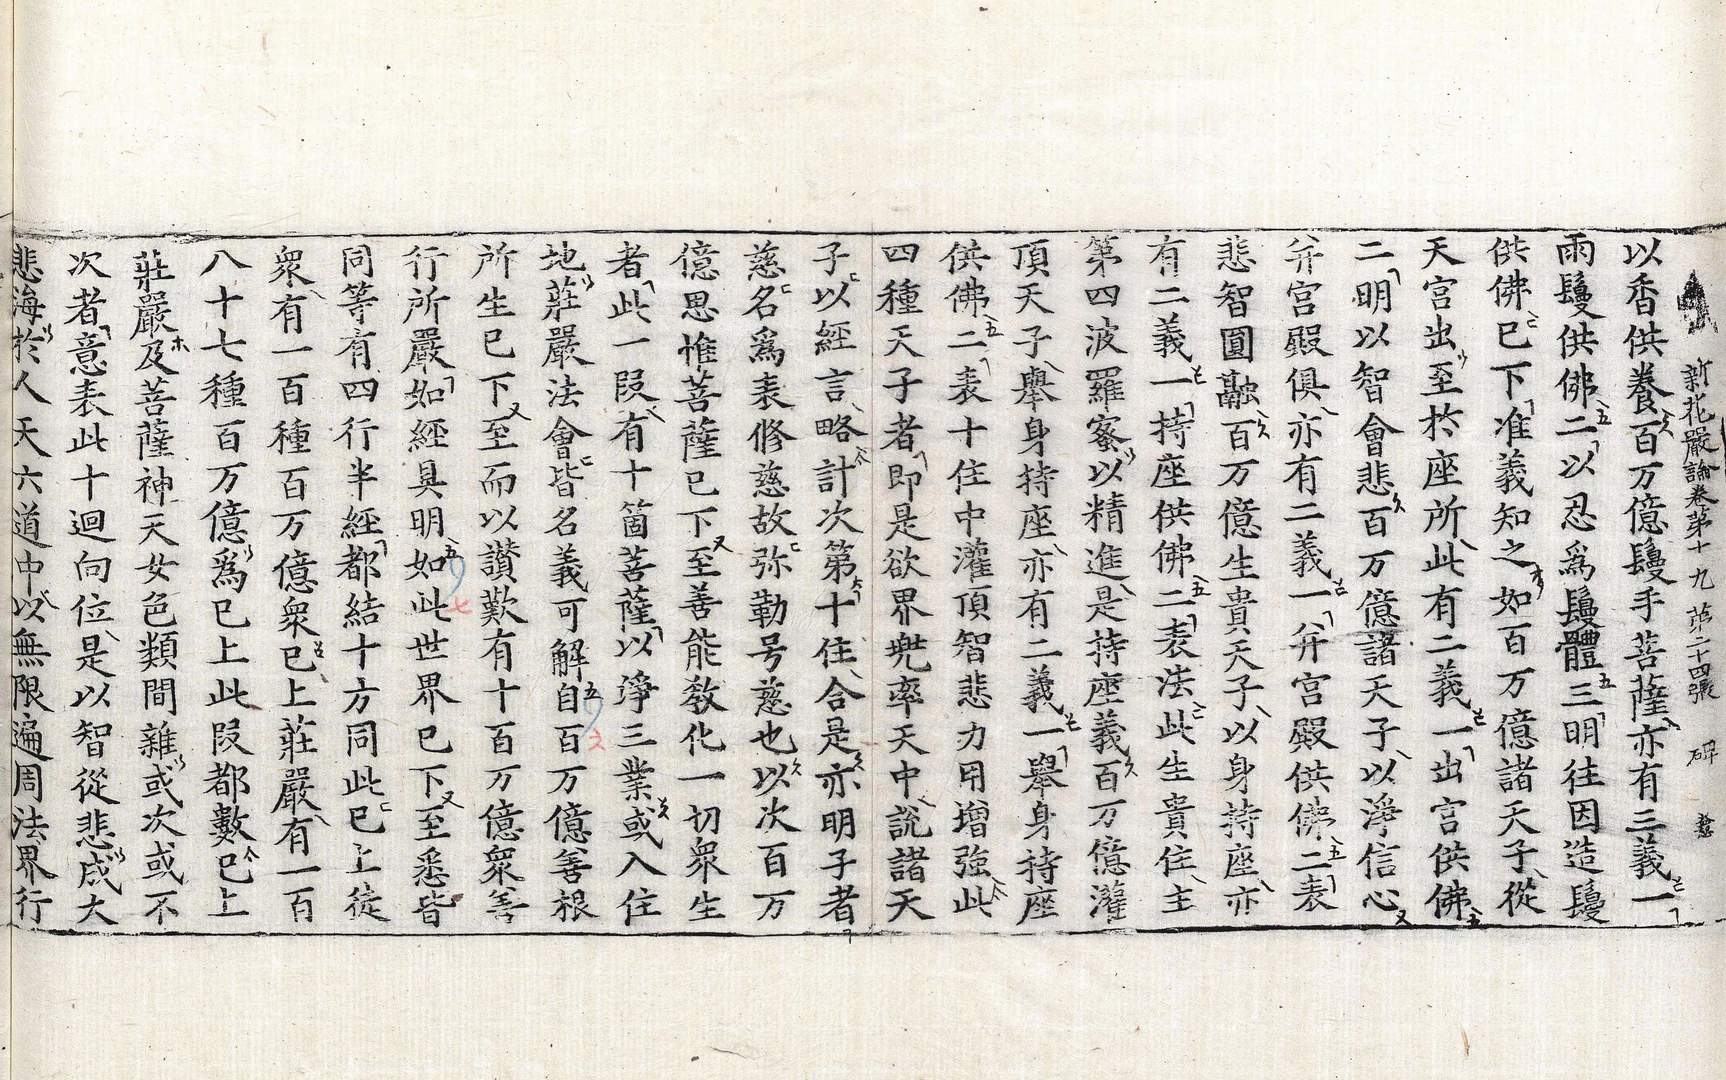 新花嚴論卷第十九 第二十四張 碑
以香供養百万億鬘手菩薩亦有三義一
雨鬘供佛二以忍爲鬘體三明往因造鬘
供佛已下准義知之如百万億諸天子從
天宮出至於座所此有二義一出宮供佛
二明以智會悲百万億諸天子以淨信心
并宮殿俱亦有二義一并宮殿供佛二表
悲智圓融百万億生貴天子以身持座亦
有二義一持座供佛二表法此生貴住主
第四波羅蜜以精進是持座義百万億灌
頂天子舉身持座亦有二義一舉身持座
供佛二表十住中灌頂智悲力用增强此
四種天子者即是欲界兠率天中說諸天
子以經言略計次第十住合是亦明子者
慈名爲表修慈故弥勒号慈也以次百万
億思惟菩薩已下至善能教化一切衆生
者此一段有十箇菩薩以淨三業或入住
地莊嚴法會皆名義可解自百万億善根
所生已下至而以讃歎有十百万億衆善
行所嚴如經具明如此世界已下至悉皆
同等有四行半經都結十方同此已上從
衆有一百種百万億衆已上莊嚴有一百
八十七種百万億爲已上此段都數已上
莊嚴及菩薩神天女色類間雜或次或不
次者意表此十迴向位是以智從悲成大
悲海於人天六道中以無限遍周法界行